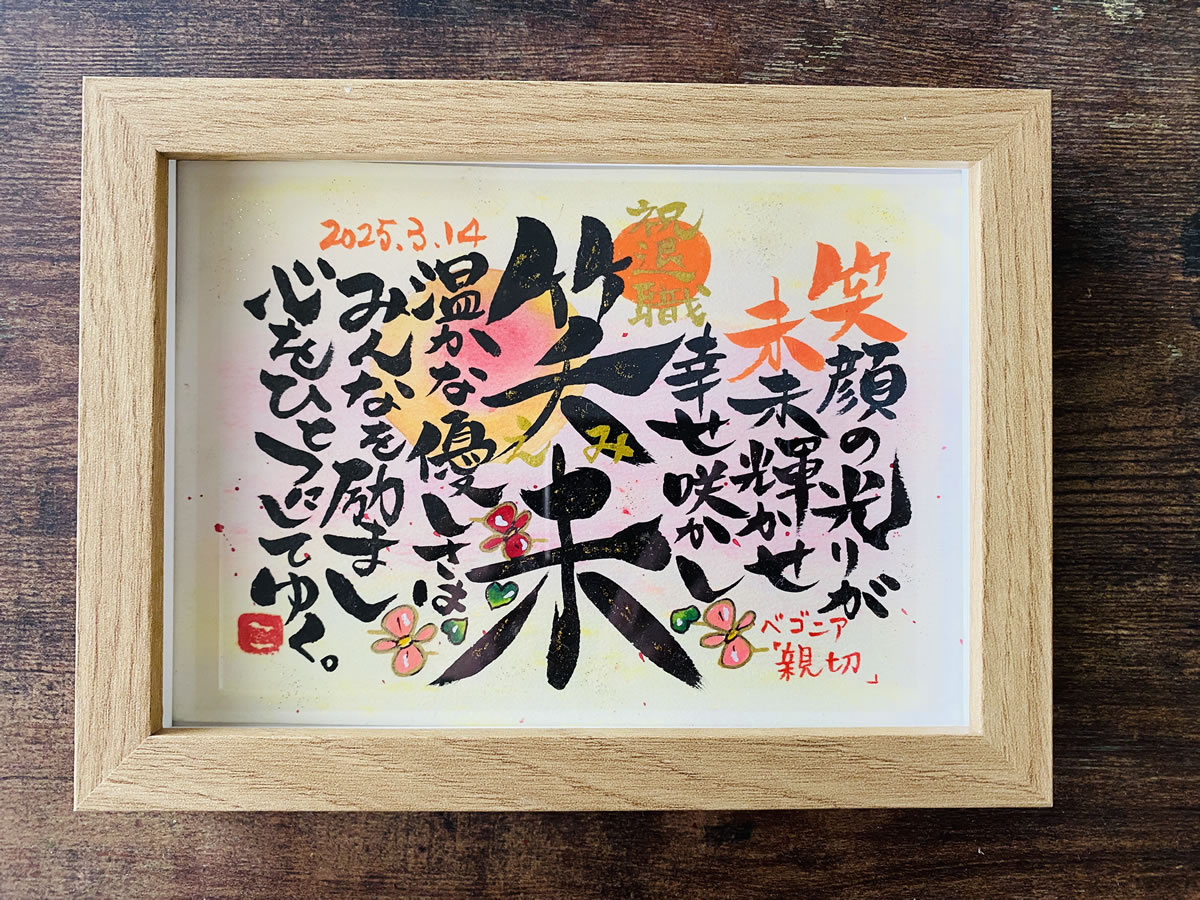 笑顔の光りが
未来輝かせ
幸せ咲かし
祝退職
笑未
えみ
温かな優しさは
みんなを励まし
心をひとつにしてゆく。
2025.3.14
ベゴニア
「親切」